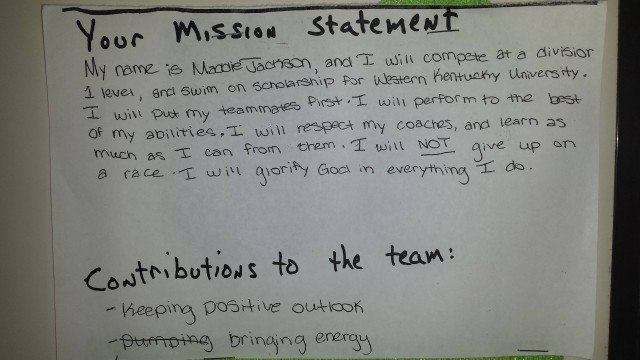 Your Mission Statement
My name is Maddie Jackson, and I will compete at a division
1 level, and swim on scholarship for Western Kentucky University.
I will put my teammates first. I will perform to the best
of my abilities. I will respect my coaches, and learn as
much as I can from them. I will NOT give up on
a race. I will glorify God in everything I do.
Contributions to the team:
- Keeping positive outlook
- Pumping bringing energy